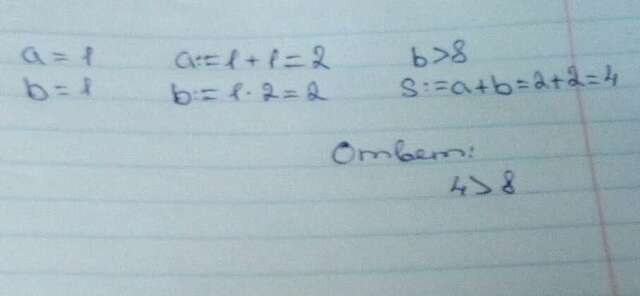 a = 1 a:=1+1=2 b>8
b = 1 b:=1·2=2 S:=a+b=2+2=4
Ответ:
4>8